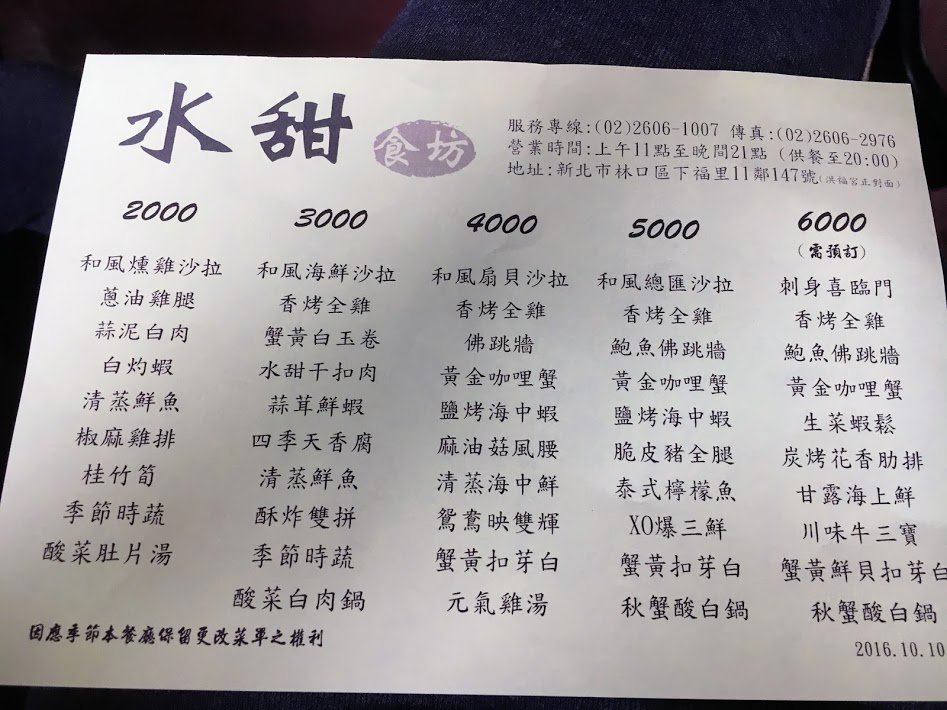 水甜食坊
服務專線:(02)2606-1007 傳真:(02)2606-2976
營業時間:上午11點至晚間21點 (供餐至20:00)
地址:新北市林口區下福里11鄰147號(洪福宮正對面)
2000
和風燻雞沙拉
蔥油雞腿
蒜泥白肉
白灼蝦
清蒸鮮魚
椒麻雞排
桂竹筍
季節時蔬
酸菜肚片湯
3000
和風海鮮沙拉
香烤全雞
蟹黃白玉卷
水甜干扣肉
蒜茸鮮蝦
四季天香腐
清蒸鮮魚
酥炸雙拼
季節時蔬
酸菜白肉鍋
4000
和風扇貝沙拉
香烤全雞
佛跳牆
黃金咖哩蟹
鹽烤海中蝦
麻油菇風腰
清蒸海中鮮
鴛鴦映雙輝
蟹黃扣芽白
元氣雞湯
5000
和風總匯沙拉
香烤全雞
鮑魚佛跳牆
黃金咖哩蟹
鹽烤海中蝦
脆皮豬全腿
泰式檸檬魚
XO爆三鮮
蟹黃扣芽白
秋蟹酸白鍋
6000
(需預訂)
刺身喜臨門
香烤全雞
鮑魚佛跳牆
黃金咖哩蟹
生菜蝦鬆
炭烤花香肋排
甘露海上鮮
川味牛三寶
蟹黃鮮貝扣芽白
秋蟹酸白鍋
因應季節本餐廳保留更改菜單之權利
2016.10.10